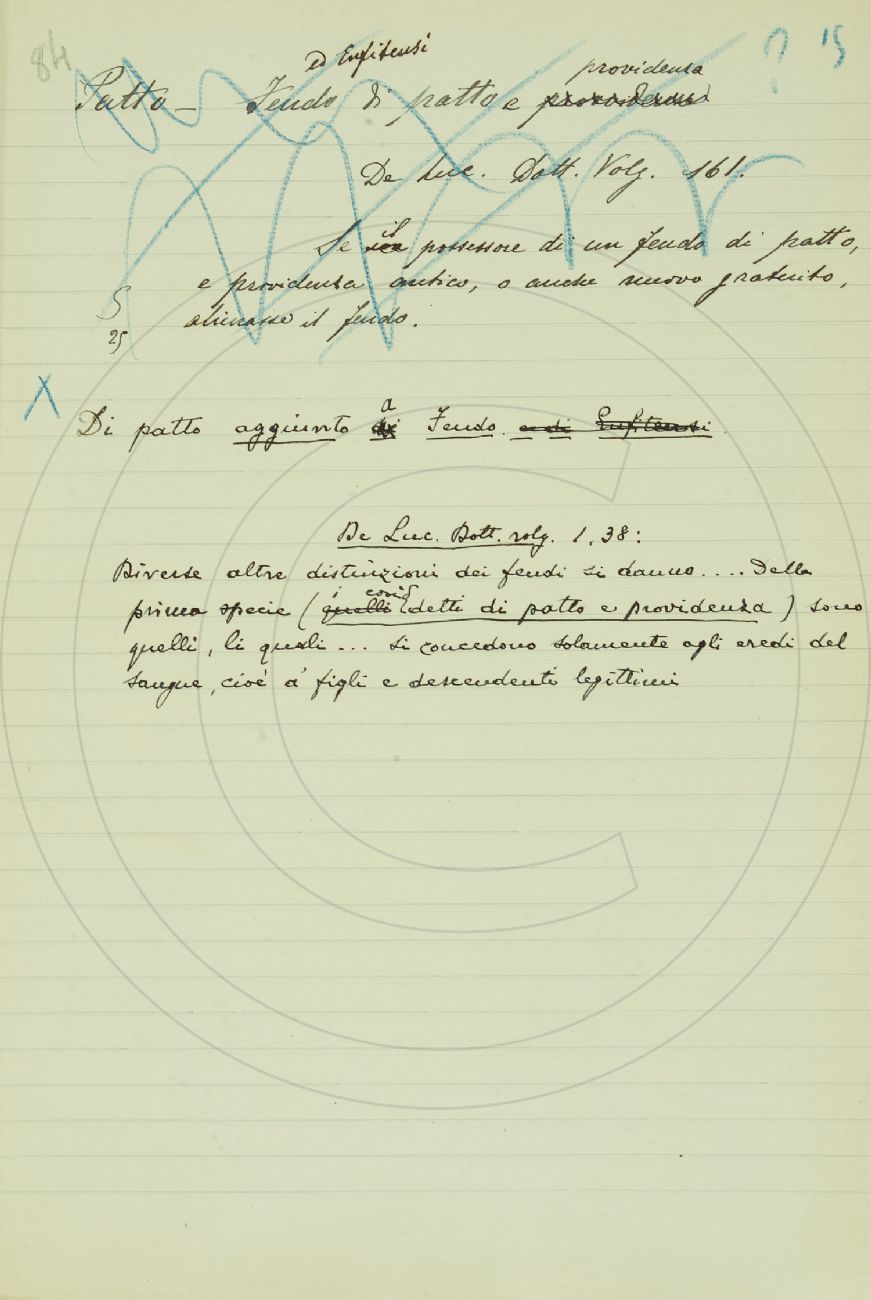 84
? 15
ed Enfiteusi
providenza
Patto – Feudo di patto e
De Luc. Dott. Volg. 161.
il
Se possessore di un feudo di patto,
e providenza antico, o anche nuovo gratuito,
alienasse il feudo.
5
25
X
a
Di patto aggiunto di Feudo. e di Enfiteusi
De Luc. Dott. volg. 1. 38:
Diverse altre distinzioni dei feudi si danno.... Della
i così
prima specie (quelli detti di patto e providenza) sono
quelli, li quali ... si concedono solamente agli eredi del
sangue, cioè a' figli e descendenti legittimi